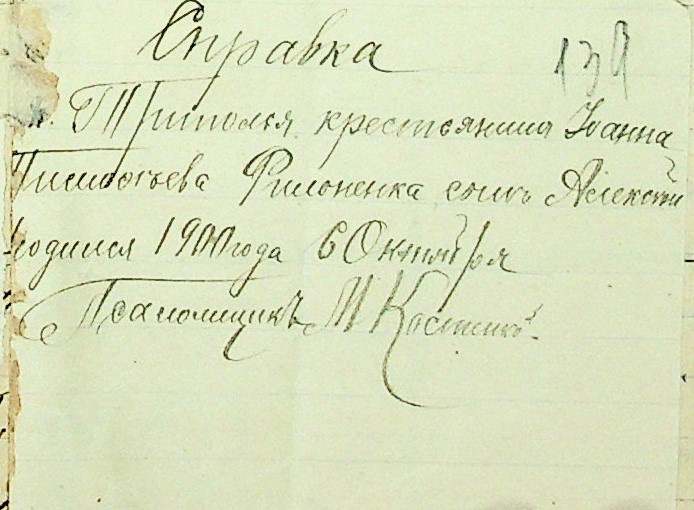 Справка
139
м. Триполья крестьянина Іоанна
Тимофѣева Филоненка сынъ Алексѣй
родился 1900 года 6 Октября
Псаломщикъ М Костенко